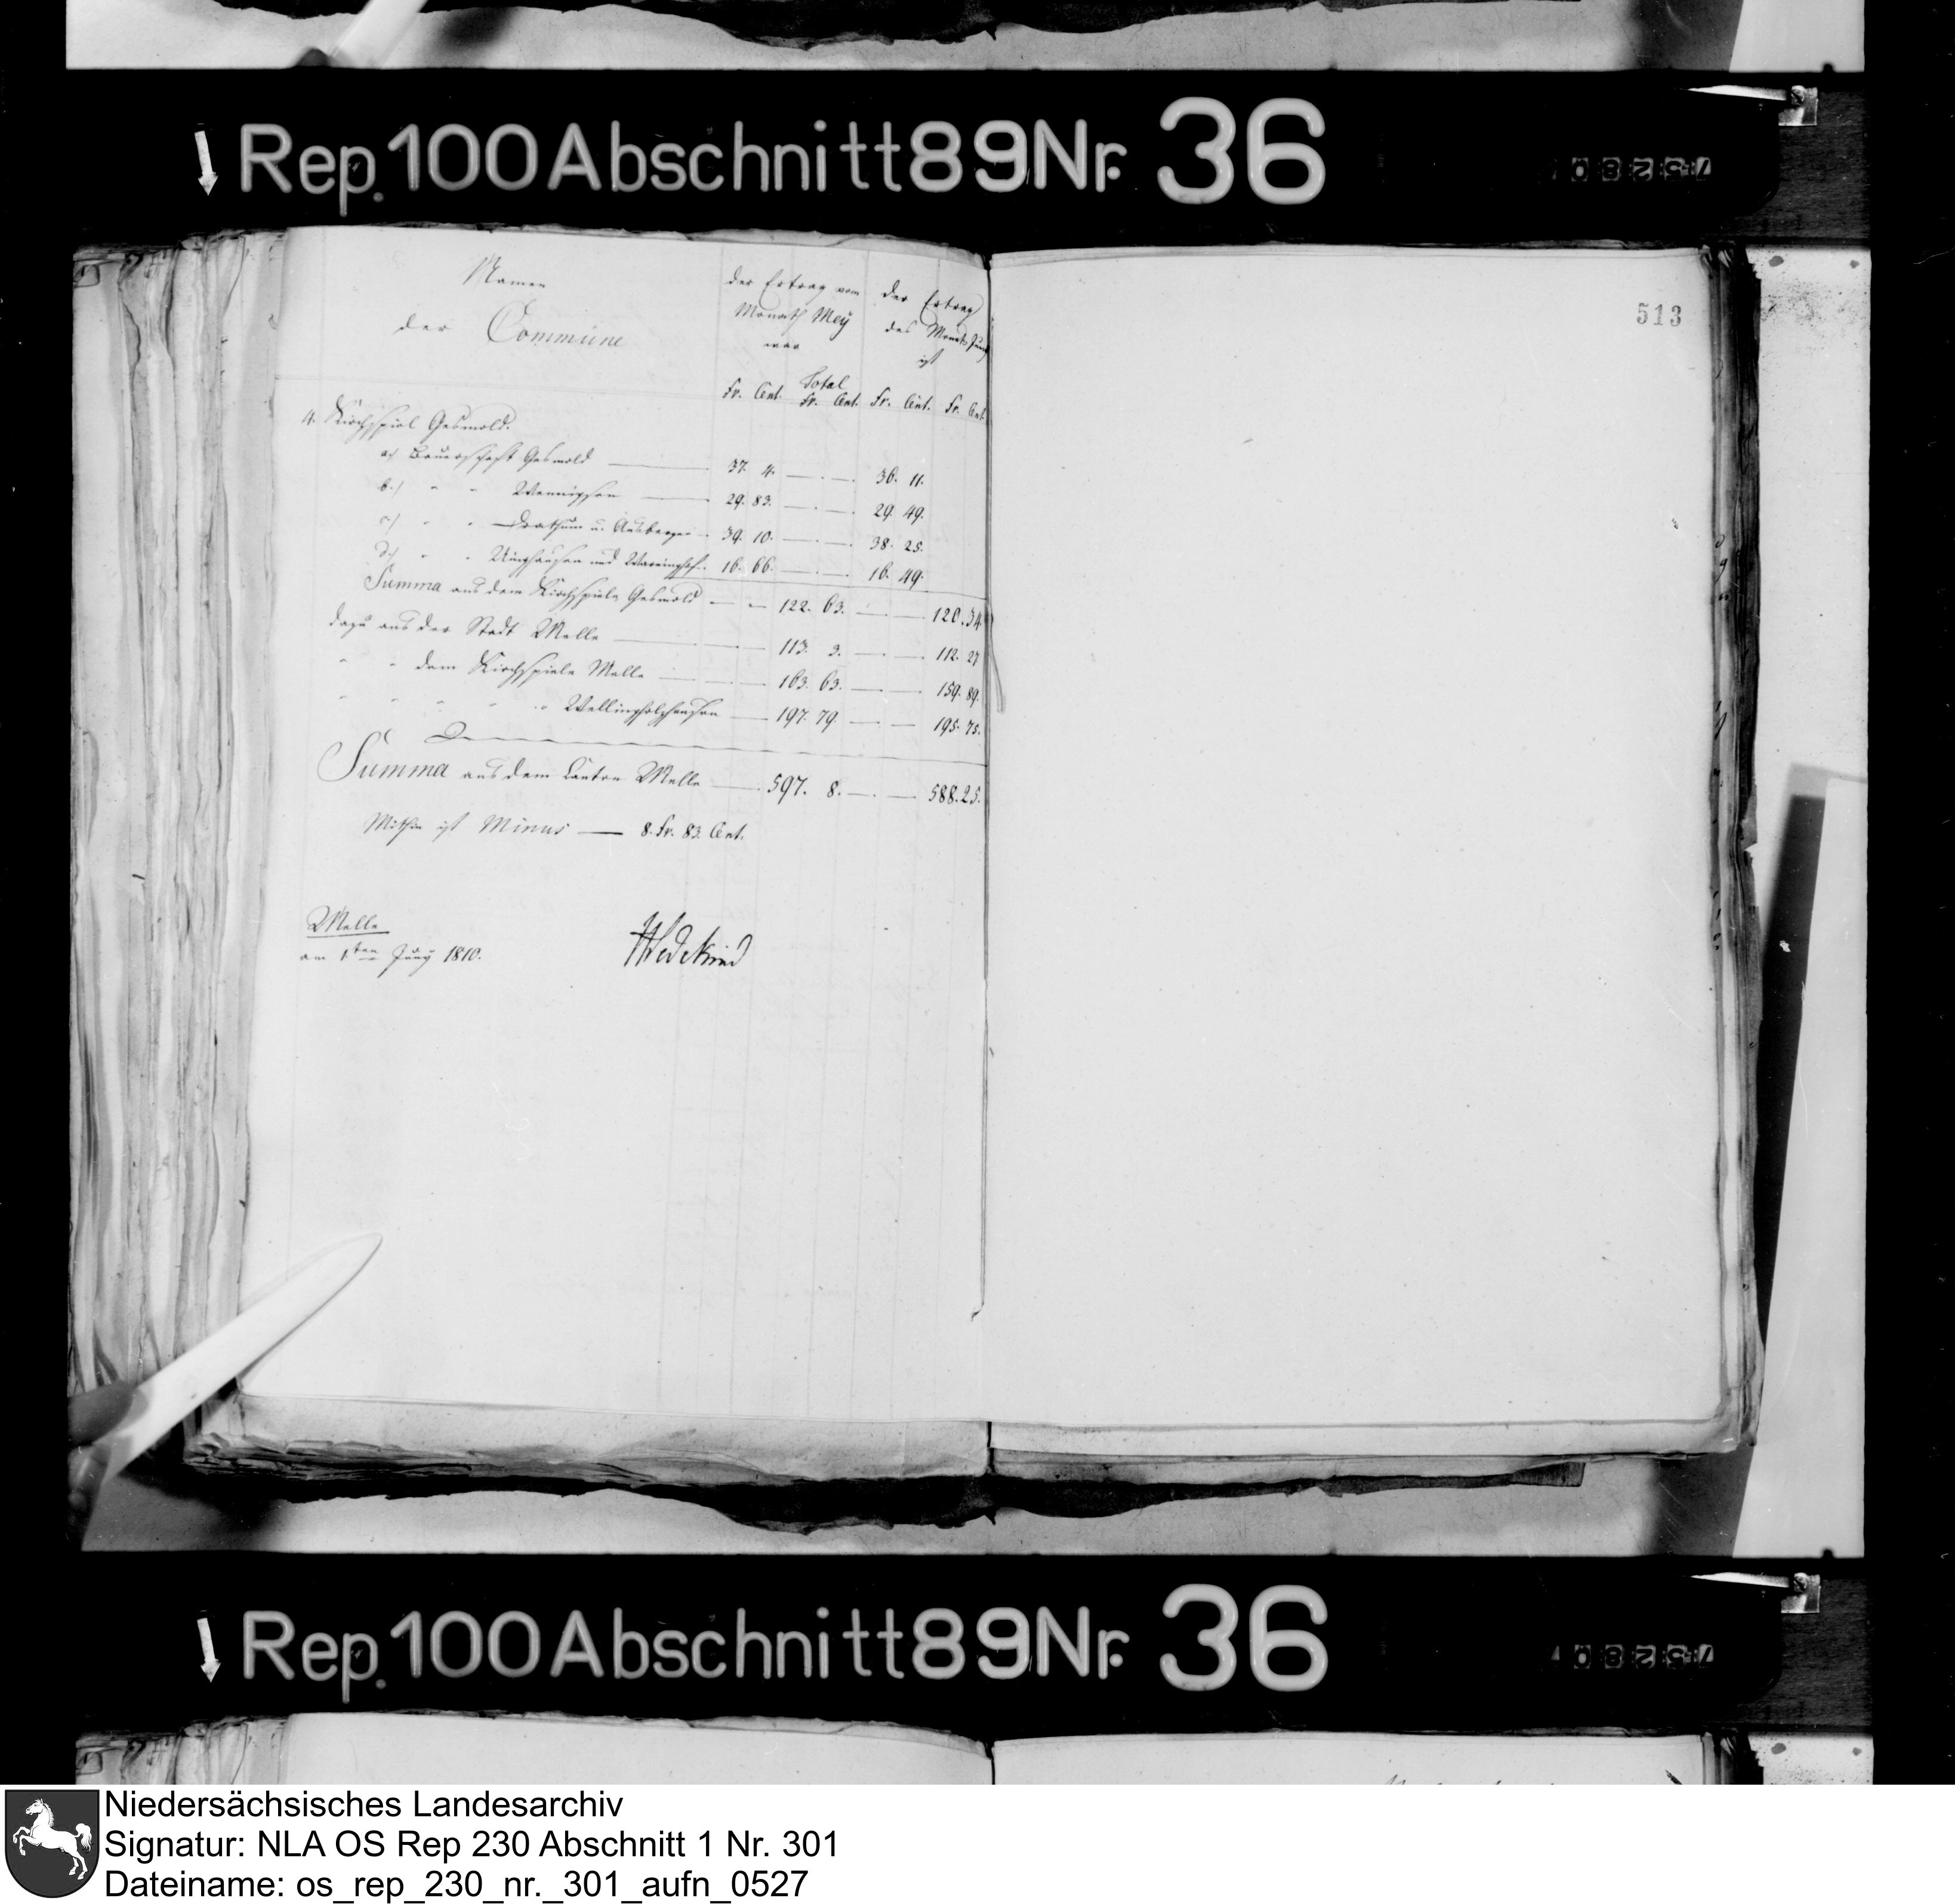 Rep. 100 Abschnitt 89 Nr. 36
75280
Namen
der Commüne
der Ertrag vom
Monath Mey
war
der Ertrag
des Monats Juny
ist
513
Fr. Cent. Total Fr. Cent. Fr. Cent. Fr. Cent.
4. Kirchspiel Gesmold.
a) Bauerschaft Gesmold 37. 4. 36. 11.
b.) " " Wennigsen 29. 83. 29. 49.
c) " " Drathum u. Ausbergen 39. 10. 38. 25.
d) " " Üdinghausen und Warringhof 16. 66. 16. 49.
Summa aus dem Kirchspiele Gesmold 122. 63. 120. 34.
dazu aus der Stadt Melle 113. 3. 112. 27
" " dem Kirchspiele Melle 163. 63. 159. 89.
" " " " " Wellingholzhausen 197. 79. 195. 75.
Summa aus dem Canton Melle 597. 8. 588. 25.
Mithin ist Minus — 8. Fr. 83. Cent.
Melle
am 1ten Juny 1810.
Wedekind
Rep. 100 Abschnitt 89 Nr. 36
75280
Niedersächsisches Landesarchiv
Signatur: NLA OS Rep 230 Abschnitt 1 Nr. 301
Dateiname: os_rep_230_nr._301_aufn_0527